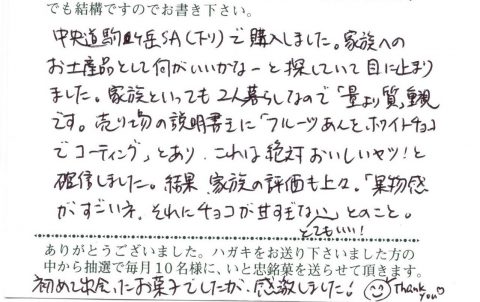 でも結構ですのでお書き下さい。
中央道駒ヶ岳SA(下り)で購入しました。家族への
お土産品として何がいいかなーと探していて目に止まり
ました。家族といっても2人暮らしなので「量より質」重視
です。売り場の説明書きに「フルーツあんとホワイトチョコ
でコーティング」とあり、これは絶対おいしいヤツ!と
確信しました。結果、家族の評価も上々。「果物感
がすごいネ、それにチョコが甘すぎない」とのこと。
とてもいい!
ありがとうございました。ハガキをお送り下さいました方の
中から抽選で毎月10名様に、いと忠銘菓を送らせて頂きます。
初めて出会ったお菓子でしたが、感激しました! Thank you